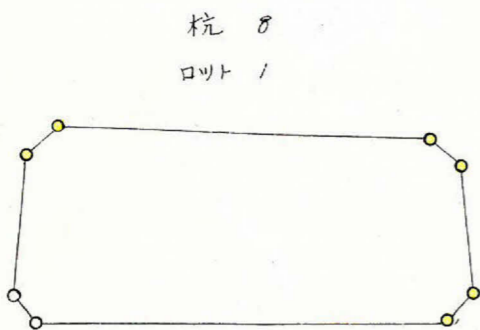 杭 8
ロット 1